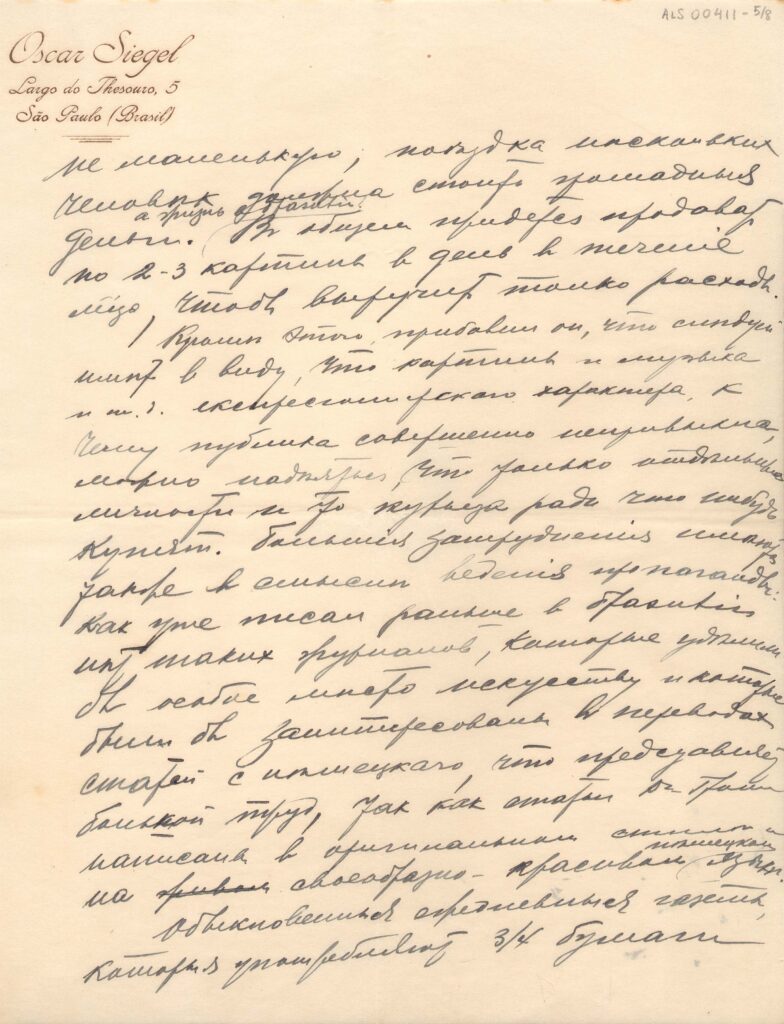 ALS 00411 - 5/8
Oscar Siegel
Largo do Thesouro, 5
São Paulo (Brasil)
не маленькую, поѣздка нѣсколькихъ
человѣк должна стоить громадныя
а жизнь
деньги. В общем придется продават
по 2-3 картины в день в теченіе
чтобы выручит только расходы.
Кромѣ этого, прибавил он, что слѣдует
имѣт в виду, что картины и музыка
и т. д. експресіонистскаго характера, к
чему публика совершенно непривыкла,
можно надѣяться, что только отдѣльныя
личности и то курьеза ради что нибудь
купят. Большія затрудненія имѣются
также в смыслѣ веденія пропаганды:
Как уже писал раньше в Бразиліи
нѣт таких журналов, которые удѣлили
бы особое мѣсто искусству и которые
были бы заинтересованы в переводах
статей с нѣмецкаго, что представляет
большой труд, так как статьи
написаны в оригинальном стилѣ и
нѣмецком
на своеобразно-красивом языкѣ.
Обыкновенныя ежедневныя газеты,
которыя употребляют 3/4 бумаги